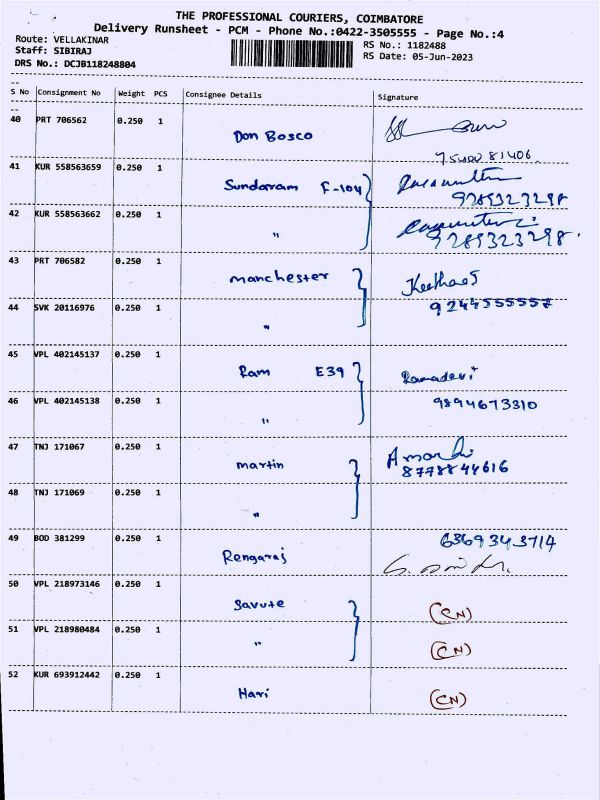 THE PROFESSIONAL COURIERS, COIMBATORE
Delivery Runsheet - PCM - Phone No.:0422-3505555 - Page No.:4
Route: VELLAKINAR RS No.: 1182488
Staff: SIBIRAJ RS Date: 05-Jun-2023
DRS No.: DCJB118248804
S No Consignment No Weight PCS Consignee Details Signature
40 PRT 706562 0.250 1 Don Bosco
75400 81406.
41 KUR 558563659 0.250 1 Sundaram F-104
9289323298
42 KUR 558563662 0.250 1 "
9289323298.
43 PRT 706582 0.250 1 manchester
9244555557
44 SVK 20116976 0.250 1 "
45 VPL 402145137 0.250 1 Ram E39 Ramadevi
46 VPL 402145138 0.250 1 " 9894673310
47 TNJ 171067 0.250 1 martin
8778844616
48 TNJ 171069 0.250 1 "
49 BOD 381299 0.250 1 Rengaraj 6369343714
50 VPL 218973146 0.250 1 Savute (CN)
51 VPL 218980484 0.250 1 " (CN)
52 KUR 693912442 0.250 1 Hari (CN)